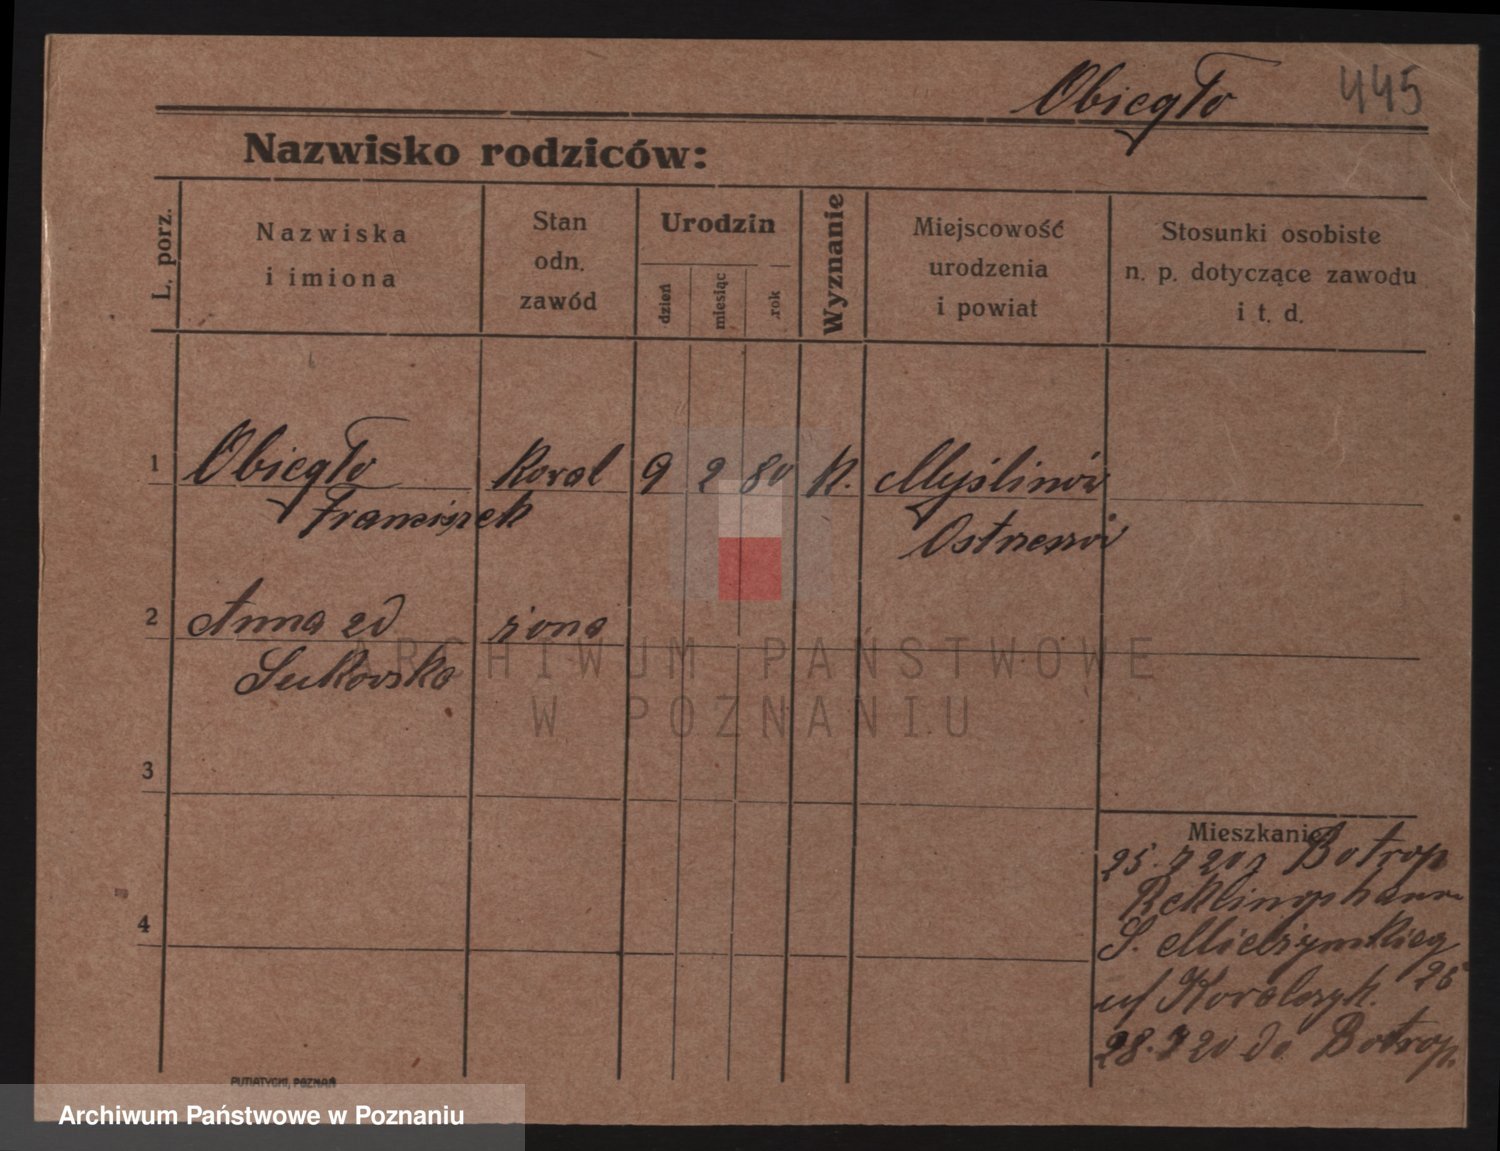 Obiegło 445
Nazwisko rodziców:
L. porz.
Nazwiska
i imiona
Stan
odn.
zawód
Urodzin
dzień
miesiąc
rok
Wyznanie
Miejscowość
urodzenia
i powiat
Stosunki osobiste
n. p. dotyczące zawodu
i t. d.
1 Obiegło Koval 9 2 80 K. Myślinów
Franciszek Ostrzeszów
2 Anna zd żona
Sukowska
3
Mieszkanie
25. 7 20 z Botrop
Reklinghaus
4
S. Mielżyńskieg
25
u/ Kovalczyk.
28. 7 20 do Botrop.
PUTIATYCKI, POZNAŃ
ARCHIWUM PAŃSTWOWE
W POZNANIU
Archiwum Państwowe w Poznaniu